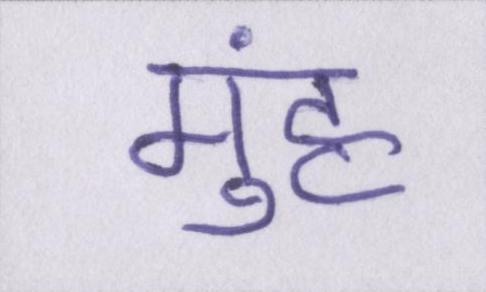 मुंह